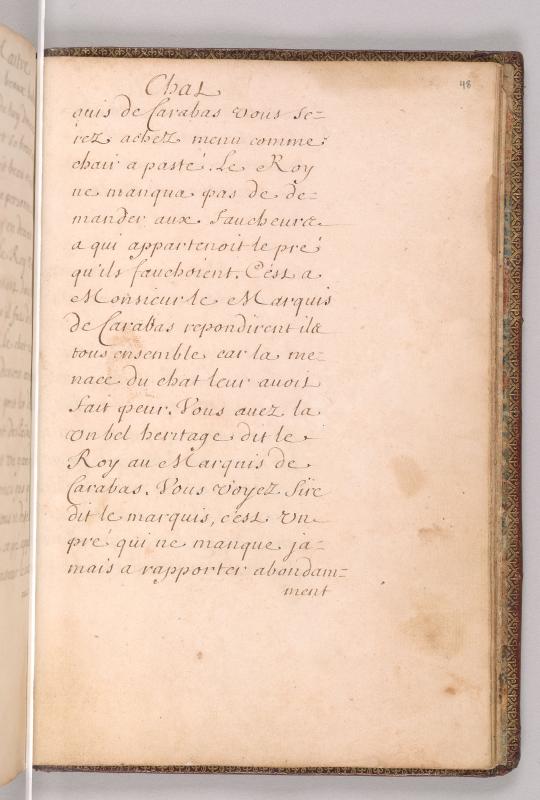 48
Chat
quis de Carabas vous se=
rez achez menu comme
chair a pasté. Le Roy
ne manqua pas de de=
mander aux faucheurs
a qui appartenoit le pré
qu'ils fauchoient. C'est a
Monsieur le Marquis
de Carabas repondirent ils
tous ensemble car la me=
nace du chat leur avoit
fait peur. Vous avez la
un bel heritage dit le
Roy au Marquis de
Carabas. Vous voyez Sire
dit le marquis, c'est un
pré qui ne manque ja=
mais a rapporter abondam=
ment